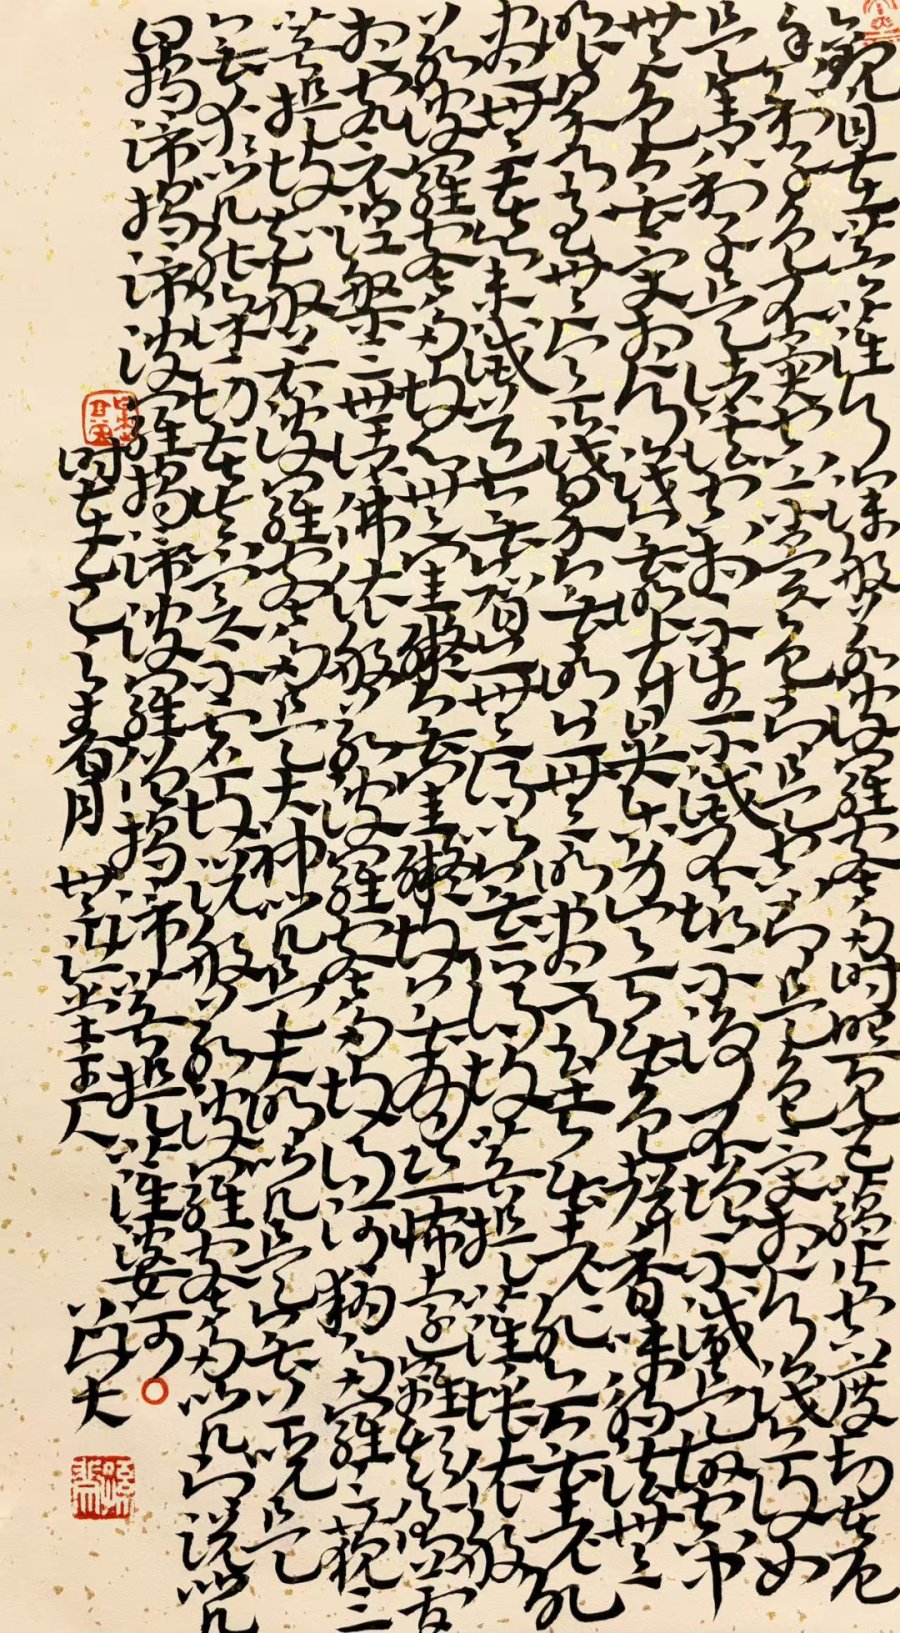 觀自在菩薩行深般若波羅蜜多時照見五蘊皆空度一切苦厄
舍利子色不異空空不異色色即是空空即是色受想行識亦復如
是舍利子是諸法空相不生不滅不垢不淨不增不減是故空中
無色無受想行識無眼耳鼻舌身意無色聲香味觸法無
眼界乃至無意識界無無明亦無無明盡乃至無老死亦無老死
盡無苦集滅道無智亦無得以無所得故菩提薩埵依般
若波羅蜜多故心無罣礙無罣礙故無有恐怖遠離顛倒夢
想究竟涅槃三世諸佛依般若波羅蜜多故得阿耨多羅三藐三
菩提故知般若波羅蜜多是大神咒是大明咒是無上咒是
無等等咒能除一切苦真實不虛故說般若波羅蜜多咒即說咒
曰揭諦揭諦波羅揭諦波羅僧揭諦菩提薩婆訶
时在乙巳之春月